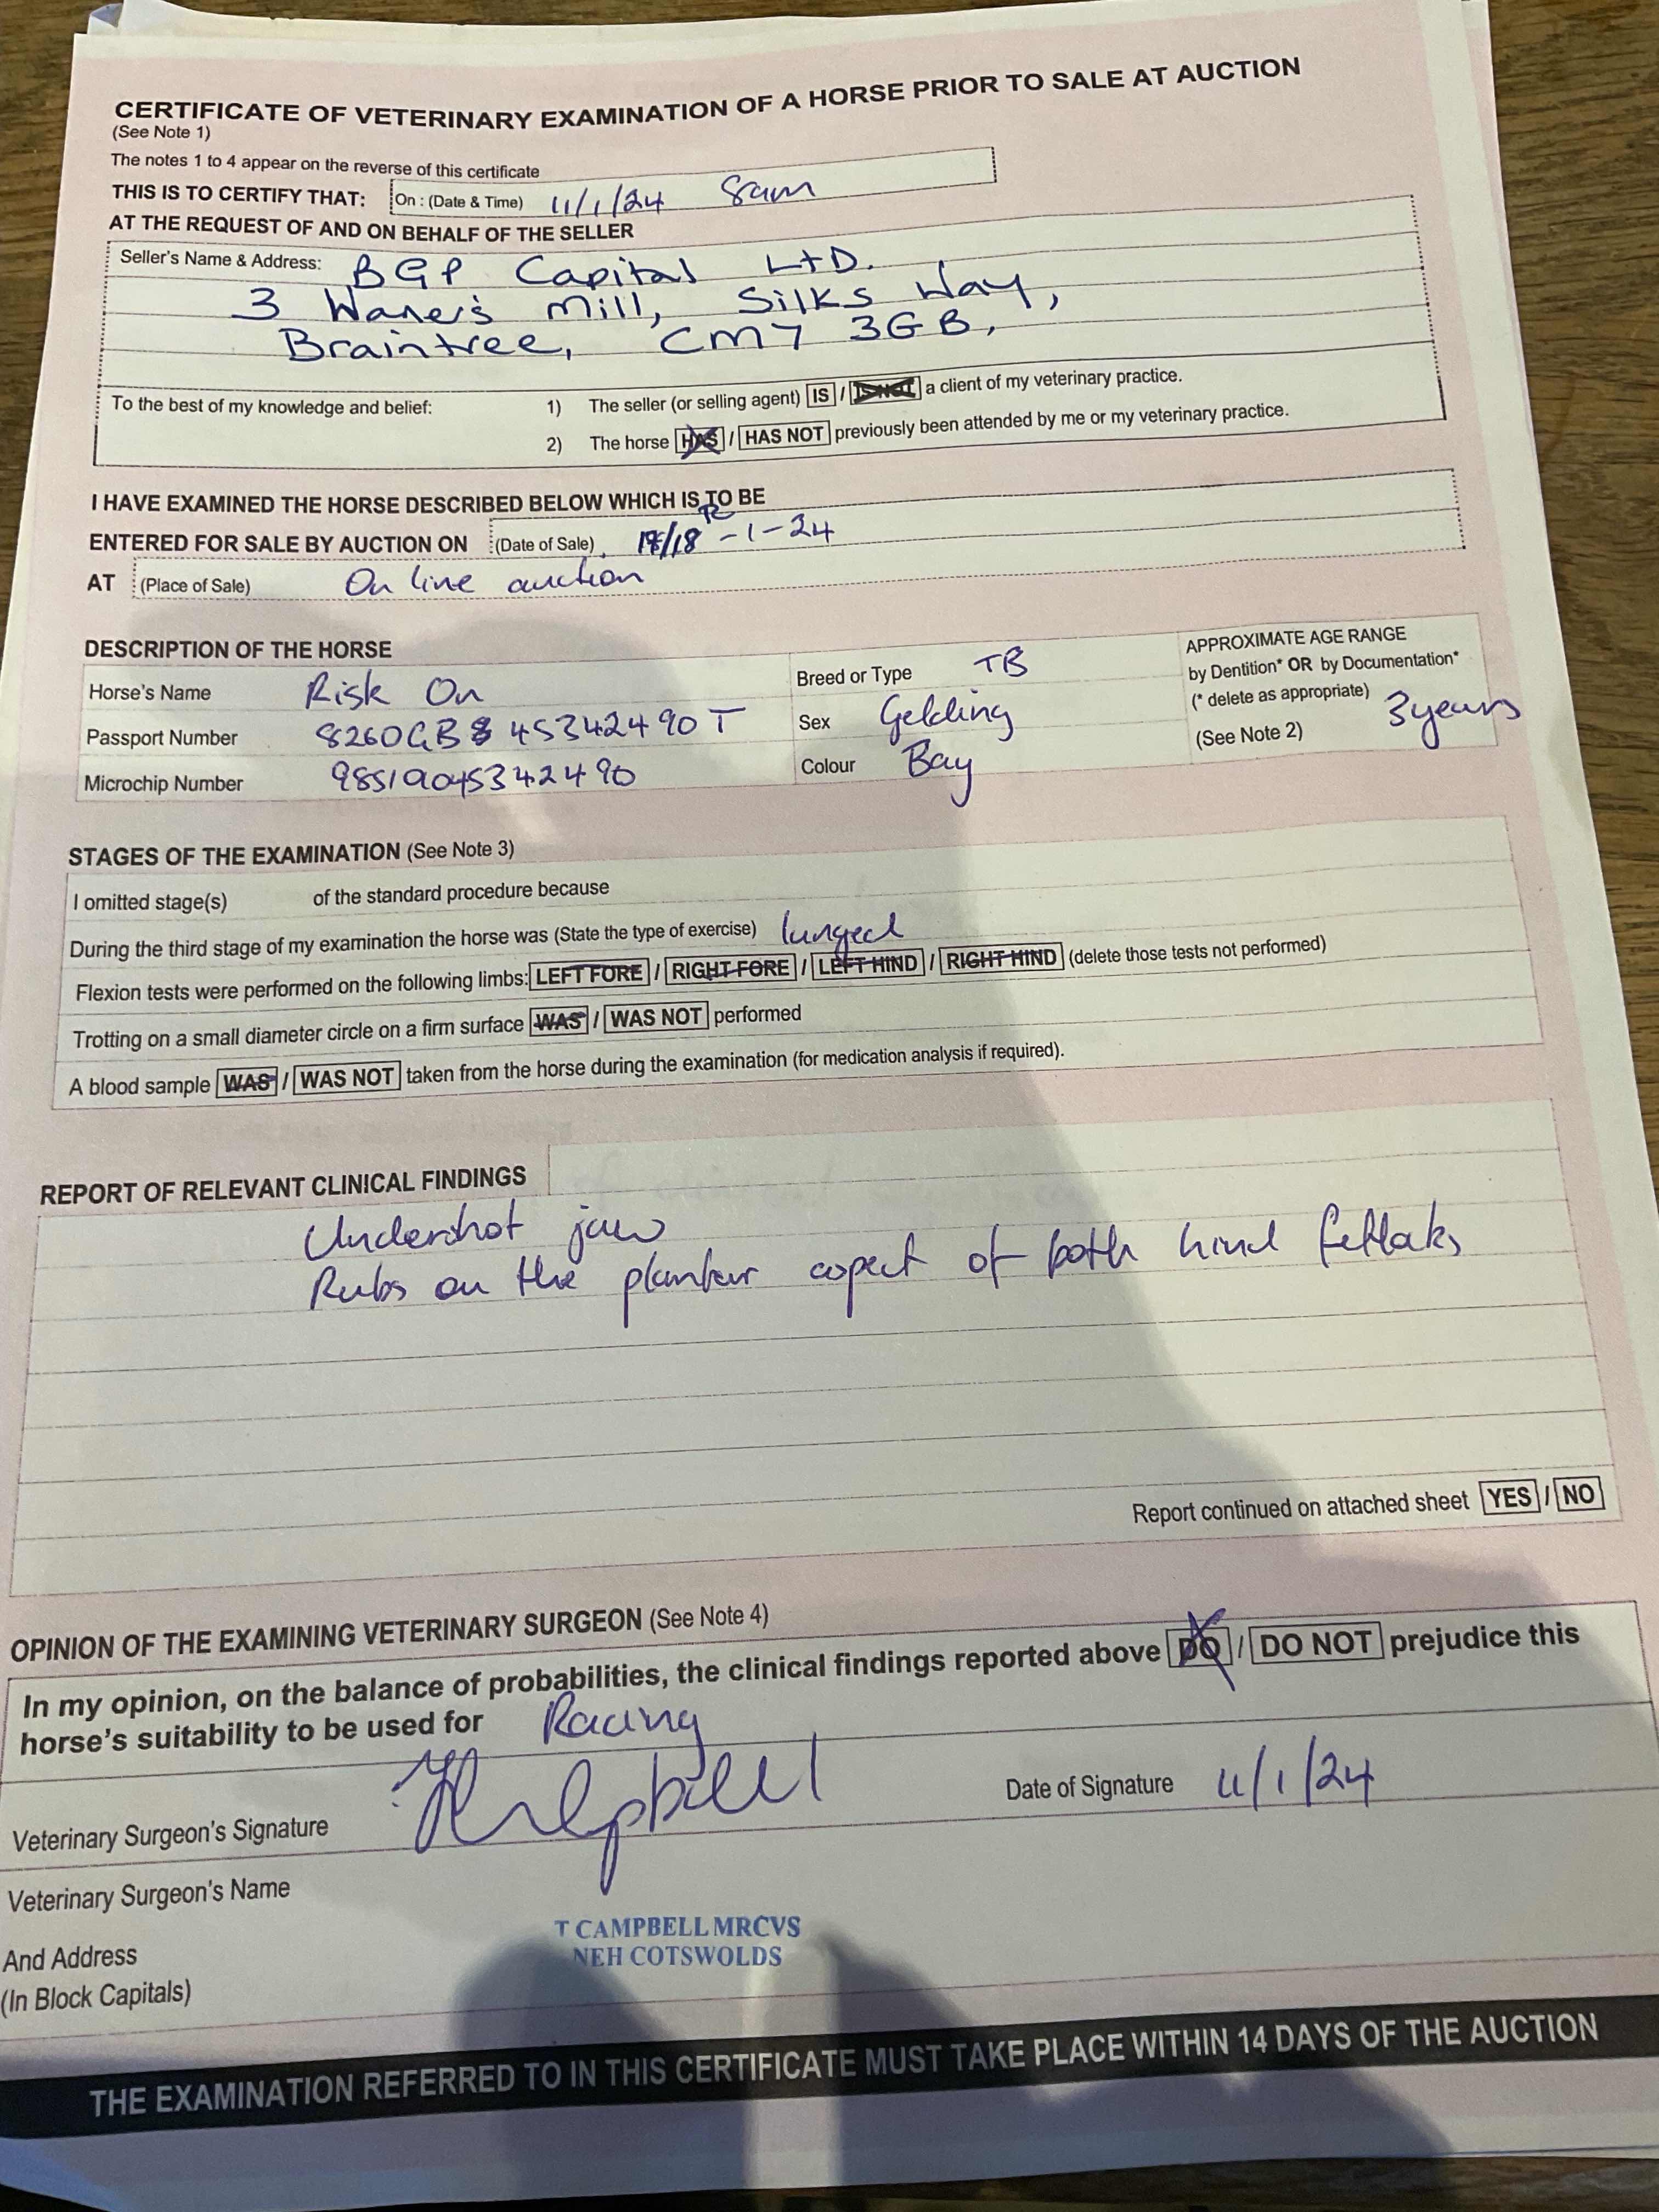 CERTIFICATE OF VETERINARY EXAMINATION OF A HORSE PRIOR TO SALE AT AUCTION
(See Note 1)
The notes 1 to 4 appear on the reverse of this certificate
THIS IS TO CERTIFY THAT: On : (Date & Time) 11/1/24 8am
AT THE REQUEST OF AND ON BEHALF OF THE SELLER
Seller's Name & Address: BGP Capital LTD.
3 Warner's Mill, Silks Way,
Braintree, CM7 3GB,
To the best of my knowledge and belief: 1) The seller (or selling agent) IS / IS NOT a client of my veterinary practice.
2) The horse HAS / HAS NOT previously been attended by me or my veterinary practice.
I HAVE EXAMINED THE HORSE DESCRIBED BELOW WHICH IS TO BE
ENTERED FOR SALE BY AUCTION ON (Date of Sale) /18 -1-24
AT (Place of Sale) On line auction
DESCRIPTION OF THE HORSE
Horse's Name Risk On
Passport Number 8260GB 45342490T
Microchip Number 98519045342490
Breed or Type TB
Sex Gelding
Colour Bay
APPROXIMATE AGE RANGE
by Dentition* OR by Documentation*
(* delete as appropriate) 3years
(See Note 2)
STAGES OF THE EXAMINATION (See Note 3)
I omitted stage(s) of the standard procedure because
During the third stage of my examination the horse was (State the type of exercise) lunged
Flexion tests were performed on the following limbs: LEFT FORE / RIGHT FORE / LEFT HIND / RIGHT HIND (delete those tests not performed)
Trotting on a small diameter circle on a firm surface WAS / WAS NOT performed
A blood sample WAS / WAS NOT taken from the horse during the examination (for medication analysis if required).
REPORT OF RELEVANT CLINICAL FINDINGS
Undershot jaw
Rubs on the plantar aspect of both hind fetlaks
Report continued on attached sheet YES / NO
OPINION OF THE EXAMINING VETERINARY SURGEON (See Note 4)
In my opinion, on the balance of probabilities, the clinical findings reported above DO / DO NOT prejudice this
horse's suitability to be used for Racing
Veterinary Surgeon's Signature
Date of Signature 11/1/24
Veterinary Surgeon's Name
And Address
(In Block Capitals)
T CAMPBELL MRCVS
NEH COTSWOLDS
THE EXAMINATION REFERRED TO IN THIS CERTIFICATE MUST TAKE PLACE WITHIN 14 DAYS OF THE AUCTION